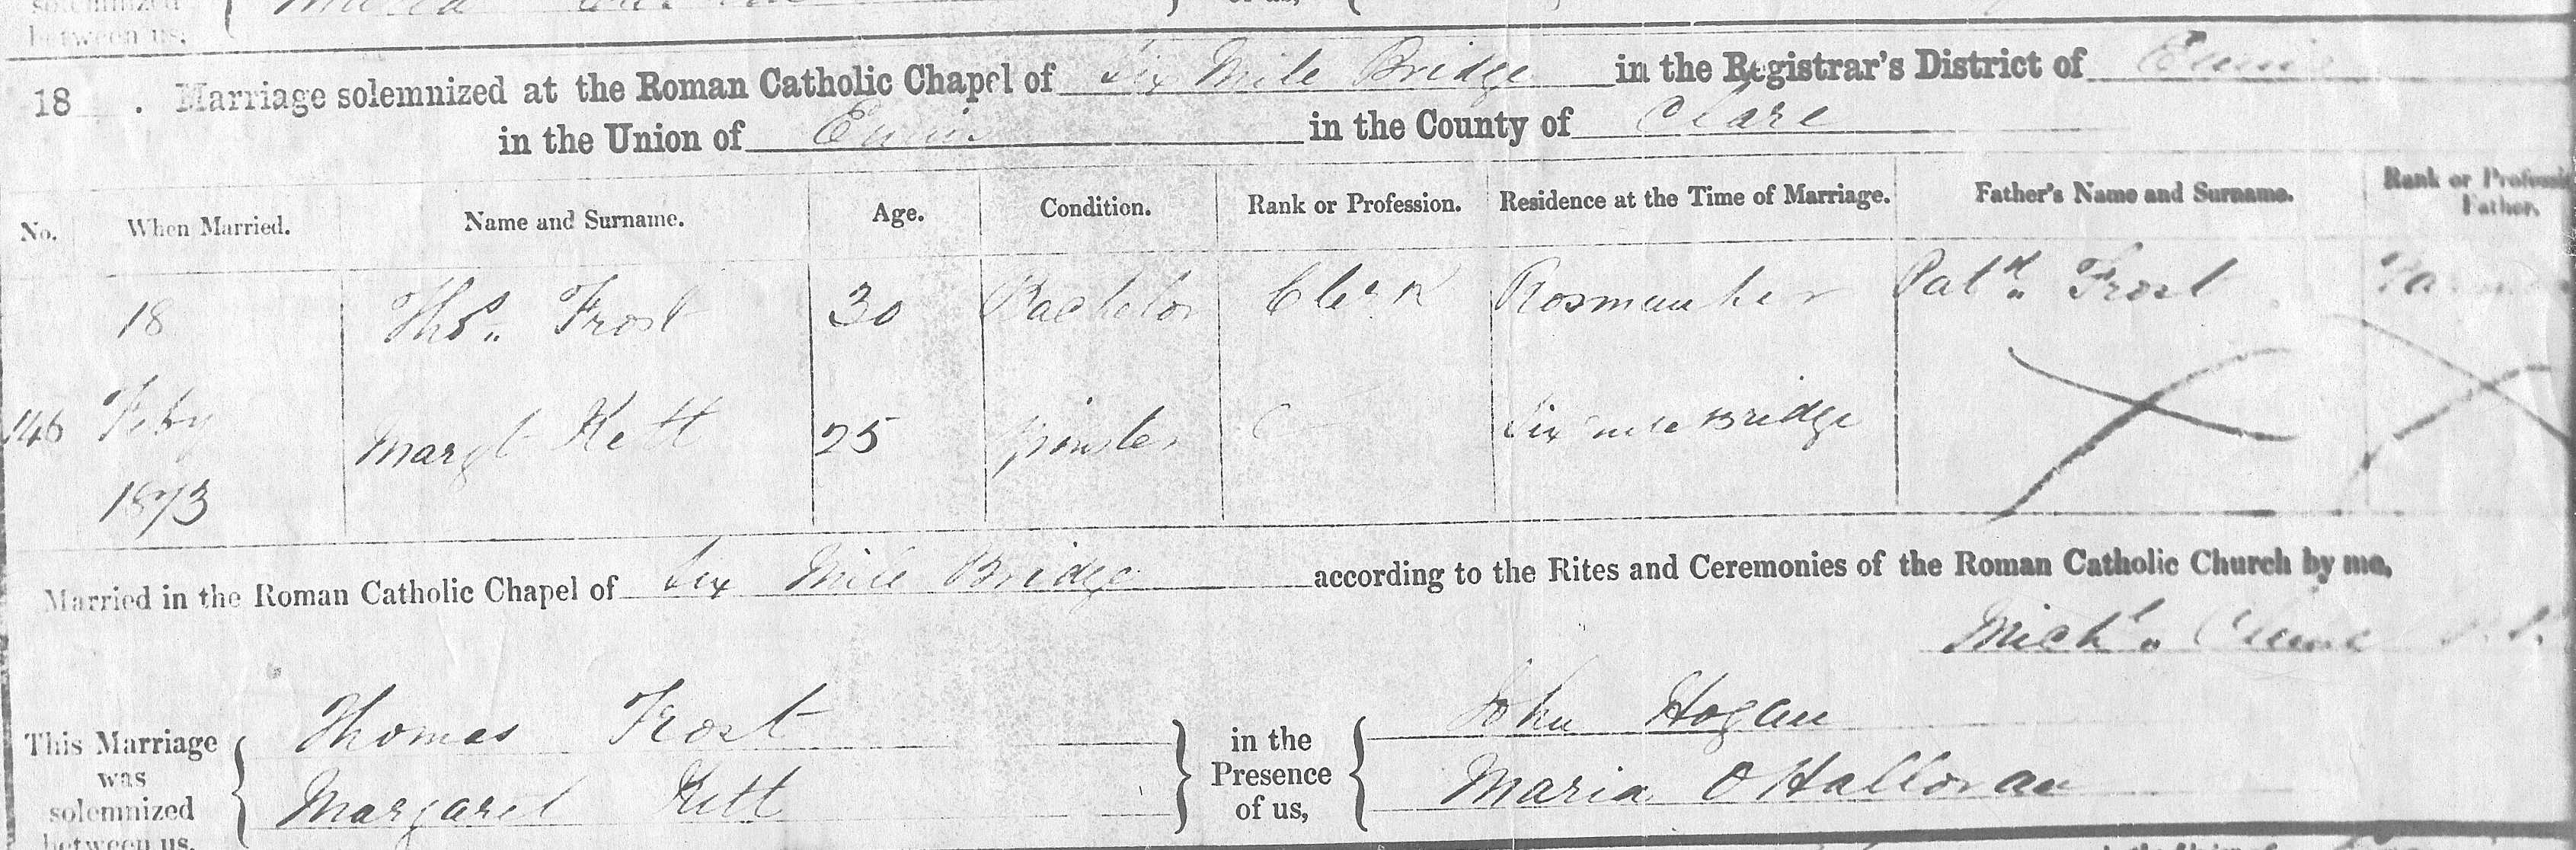 solemnized
between us,
18 . Marriage solemnized at the Roman Catholic Chapel of Six Mile Bridge in the Registrar's District of Ennis
in the Union of Ennis in the County of Clare
No. When Married. Name and Surname. Age. Condition. Rank or Profession. Residence at the Time of Marriage. Father's Name and Surname. Rank or Profession
Father.
18 Thos. Frost 30 Bachelor Clerk Rosmanher Patk. Frost
146 Feby Margt Kett 25 Spinster Six mile Bridge
1873
Married in the Roman Catholic Chapel of Six Mile Bridge according to the Rites and Ceremonies of the Roman Catholic Church by me,
Michl. Clune
This Marriage was solemnized between us, Thomas Frost in the Presence of us, John Hogan
Margaret Kett Maria O Halloran